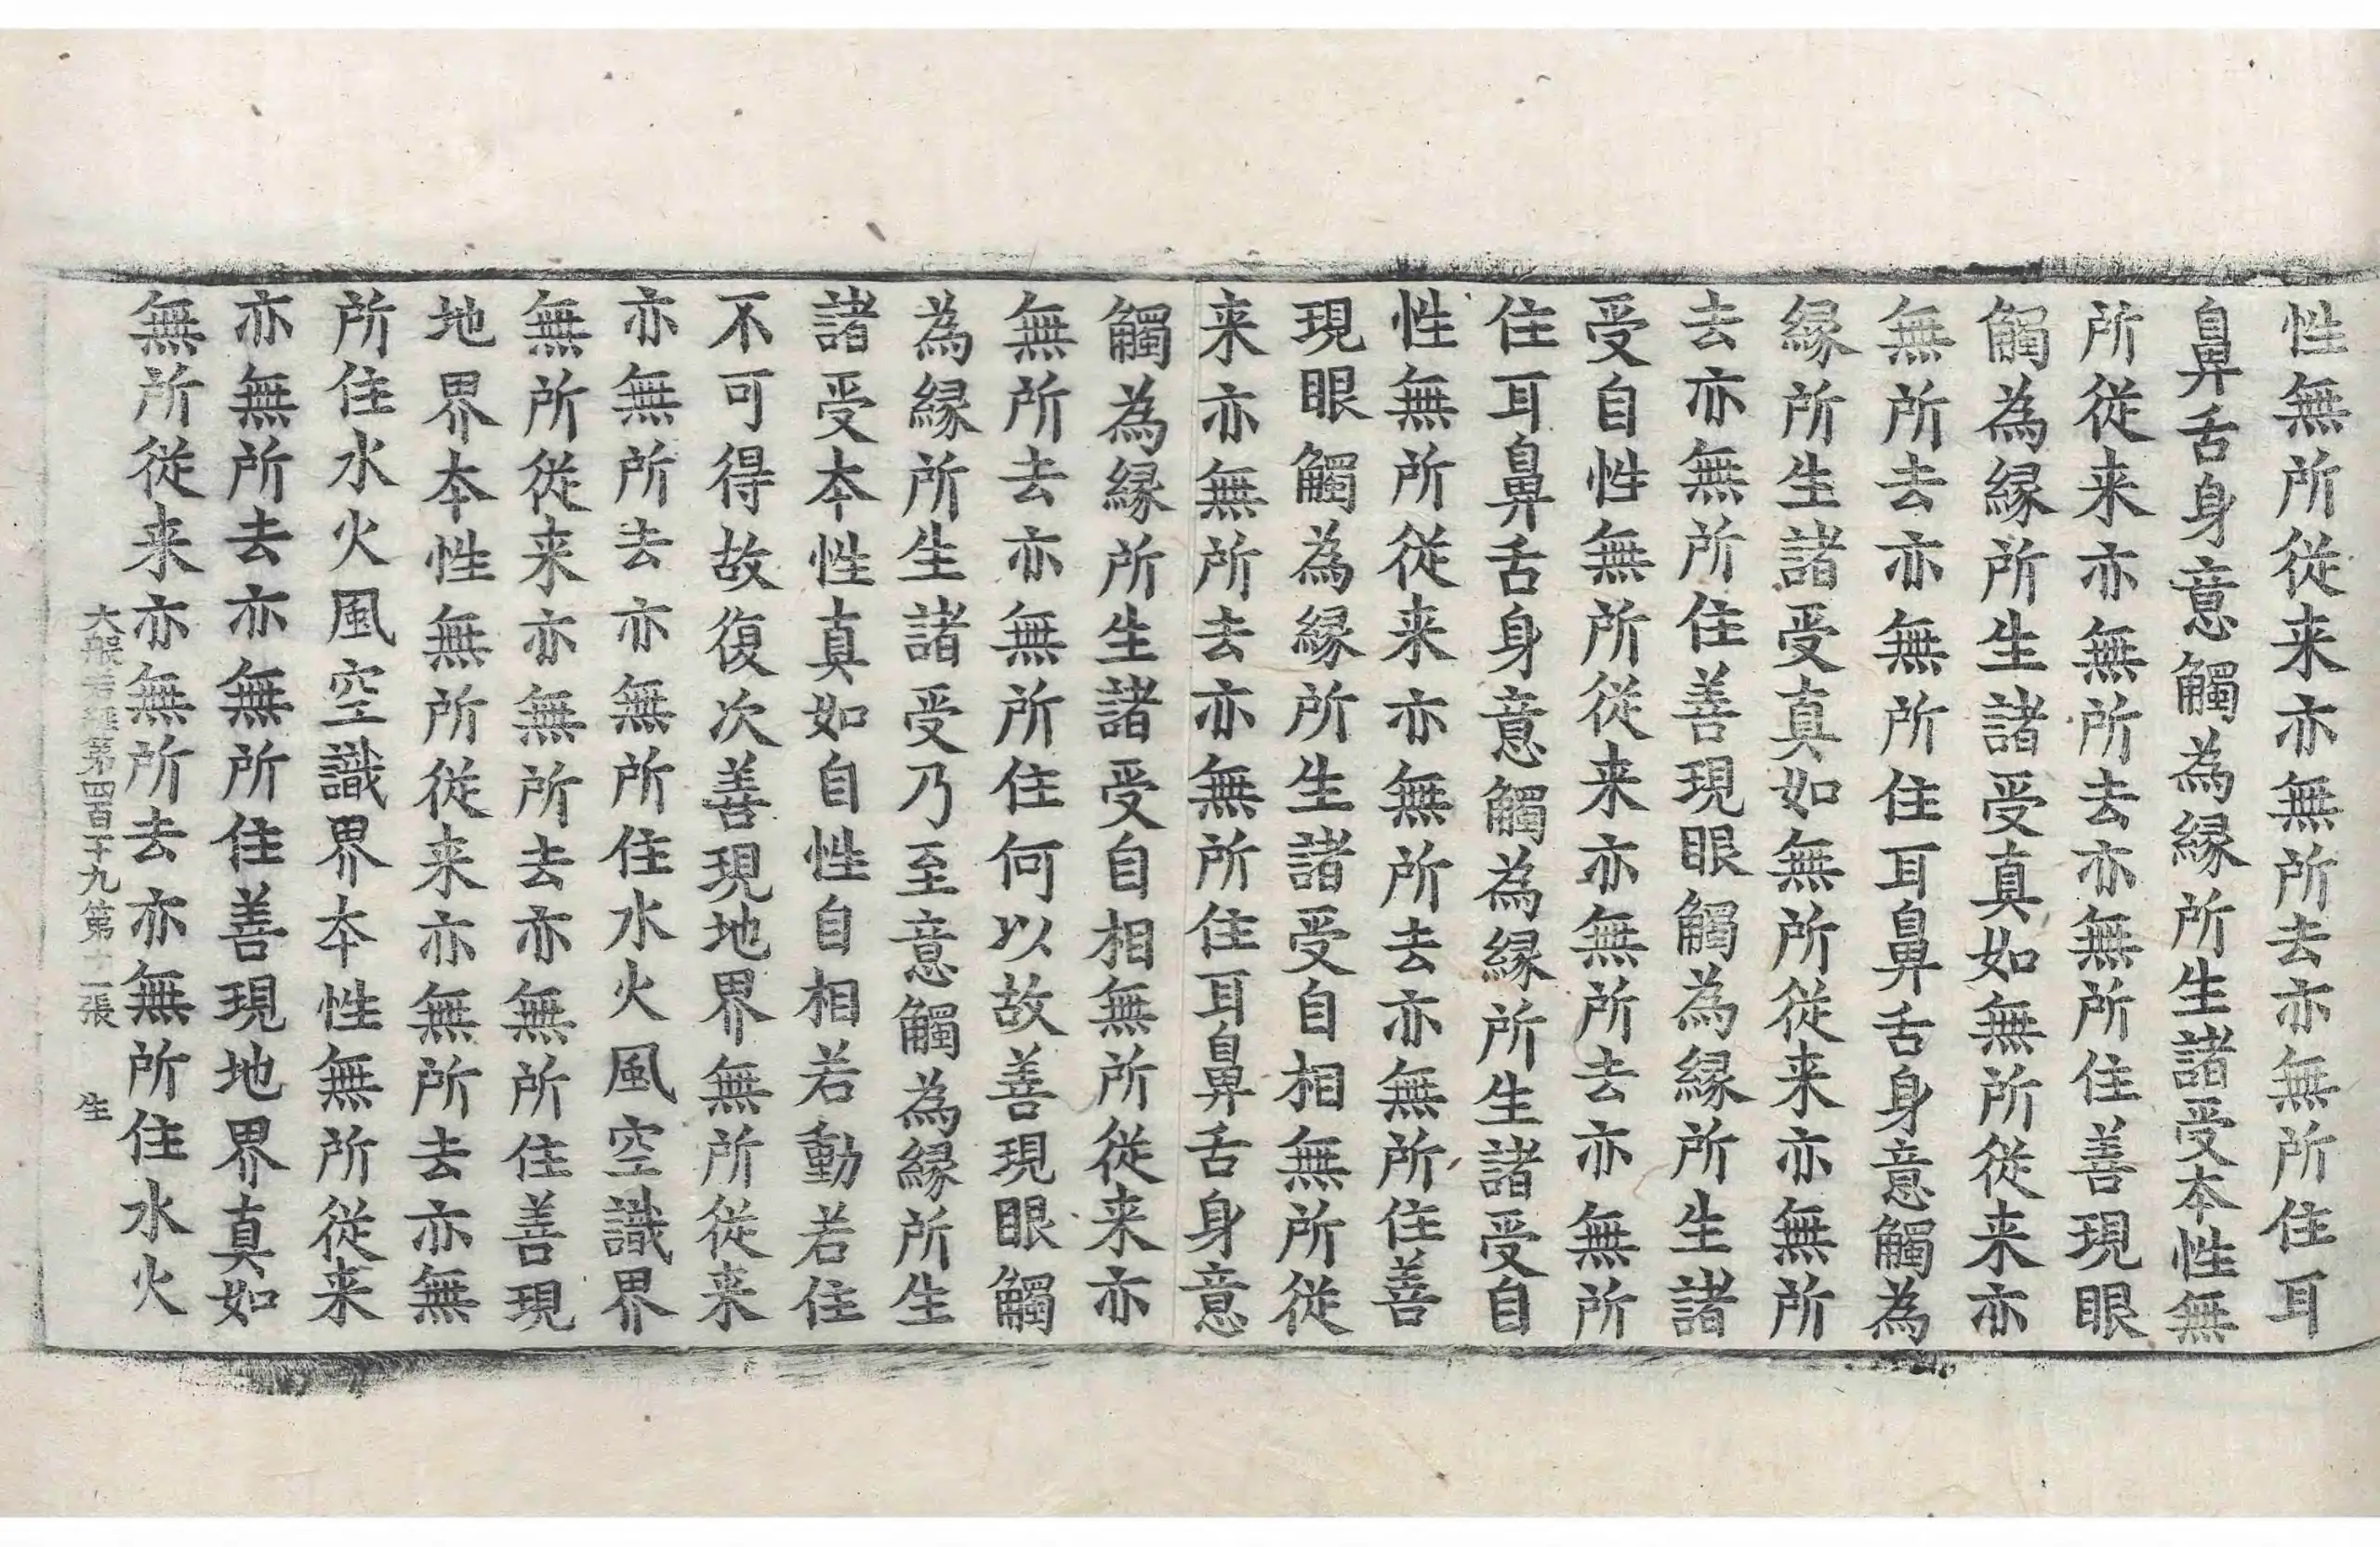 性無所從来亦無所去亦無所住耳
鼻舌身意觸為縁所生諸受本性無
所從来亦無所去亦無所住善現眼
觸為縁所生諸受真如無所從来亦
無所去亦無所住耳鼻舌身意觸為
縁所生諸受真如無所從来亦無所
去亦無所住善現眼觸為縁所生諸
受自性無所從来亦無所去亦無所
住耳鼻舌身意觸為縁所生諸受自
性無所從来亦無所去亦無所住善
現眼觸為縁所生諸受自相無所從
来亦無所去亦無所住耳鼻舌身意
觸為縁所生諸受自相無所從来亦
無所去亦無所住何以故善現眼觸
為縁所生諸受乃至意觸為縁所生
諸受本性真如自性自相若動若住
不可得故復次善現地界無所從来
亦無所去亦無所住水火風空識界
無所從来亦無所去亦無所住善現
地界本性無所從来亦無所去亦無
所住水火風空識界本性無所從来
亦無所去亦無所住善現地界真如
無所從来亦無所去亦無所住水火
大般若經第四百十九第十一張 生